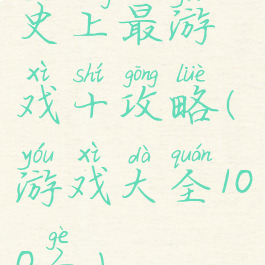 史上最游
xì shí gōng lüè
戏十攻略(
yóu xì dà quán
游戏大全10
gè
0个)